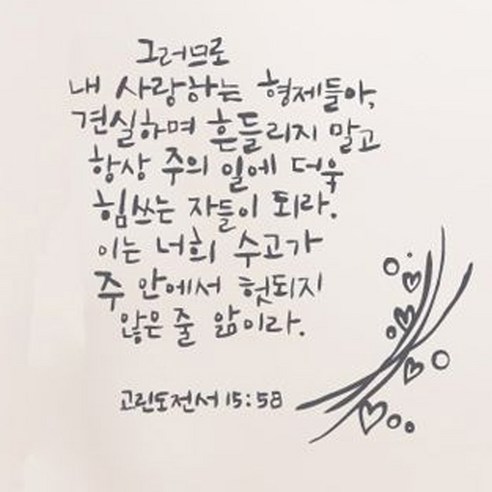 그러므로
내 사랑하는 형제들아,
견실하며 흔들리지 말고
항상 주의 일에 더욱
힘쓰는 자들이 되라.
이는 너희 수고가
주 안에서 헛되지
않은 줄 앎이라.
고린도전서 15:58